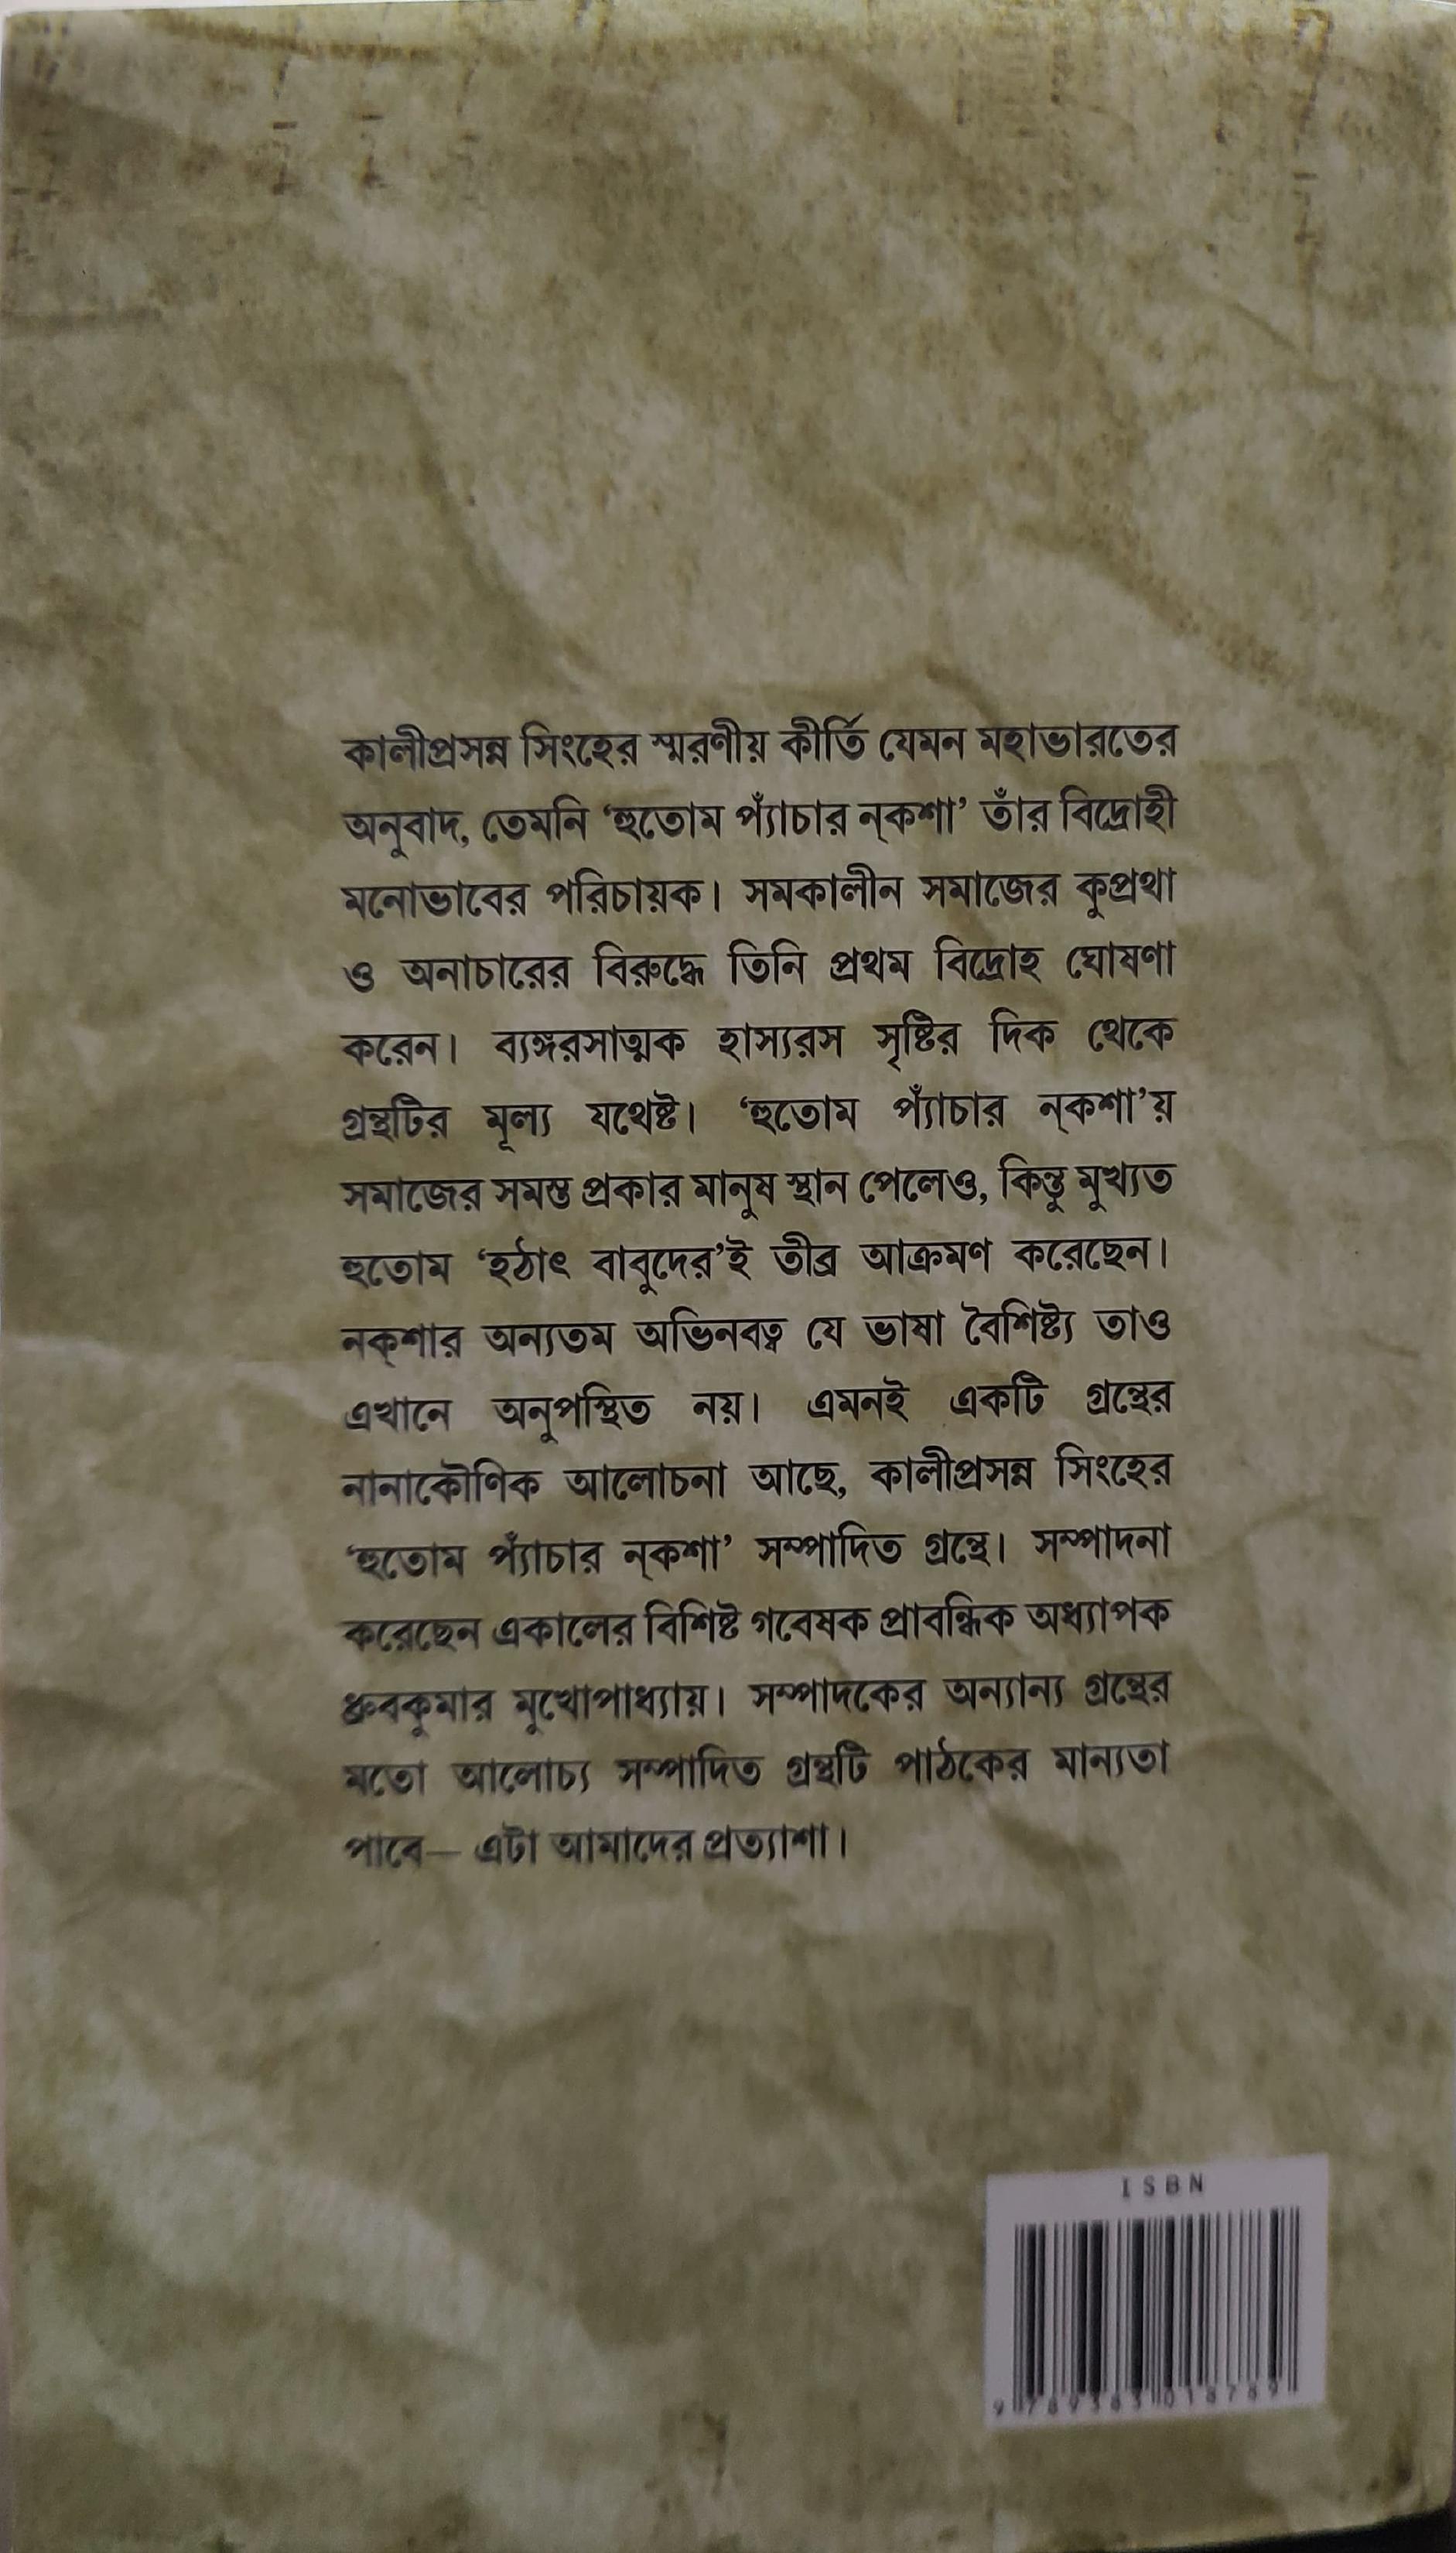 কালীপ্রসন্ন সিংহের স্মরণীয় কীর্তি যেমন মহাভারতের
অনুবাদ, তেমনি ‘হুতোম প্যাঁচার ন্‌কশা’ তাঁর বিদ্রোহী
মনোভাবের পরিচায়ক। সমকালীন সমাজের কুপ্রথা
ও অনাচারের বিরুদ্ধে তিনি প্রথম বিদ্রোহ ঘোষণা
করেন। ব্যঙ্গরসাত্মক হাস্যরস সৃষ্টির দিক থেকে
গ্রন্থটির মূল্য যথেষ্ট। ‘হুতোম প্যাঁচার ন্‌কশা’য়
সমাজের সমস্ত প্রকার মানুষ স্থান পেলেও, কিন্তু মুখ্যত
হুতোম ‘হঠাৎ বাবুদের’ই তীব্র আক্রমণ করেছেন।
নক্‌শার অন্যতম অভিনবত্ব যে ভাষা বৈশিষ্ট্য তাও
এখানে অনুপস্থিত নয়। এমনই একটি গ্রন্থের
নানাকৌণিক আলোচনা আছে, কালীপ্রসন্ন সিংহের
‘হুতোম প্যাঁচার ন্‌কশা’ সম্পাদিত গ্রন্থে। সম্পাদনা
করেছেন একালের বিশিষ্ট গবেষক প্রাবন্ধিক অধ্যাপক
ধ্রুবকুমার মুখোপাধ্যায়। সম্পাদকের অন্যান্য গ্রন্থের
মতো আলোচ্য সম্পাদিত গ্রন্থটি পাঠকের মান্যতা
পাবে— এটা আমাদের প্রত্যাশা।
ISBN